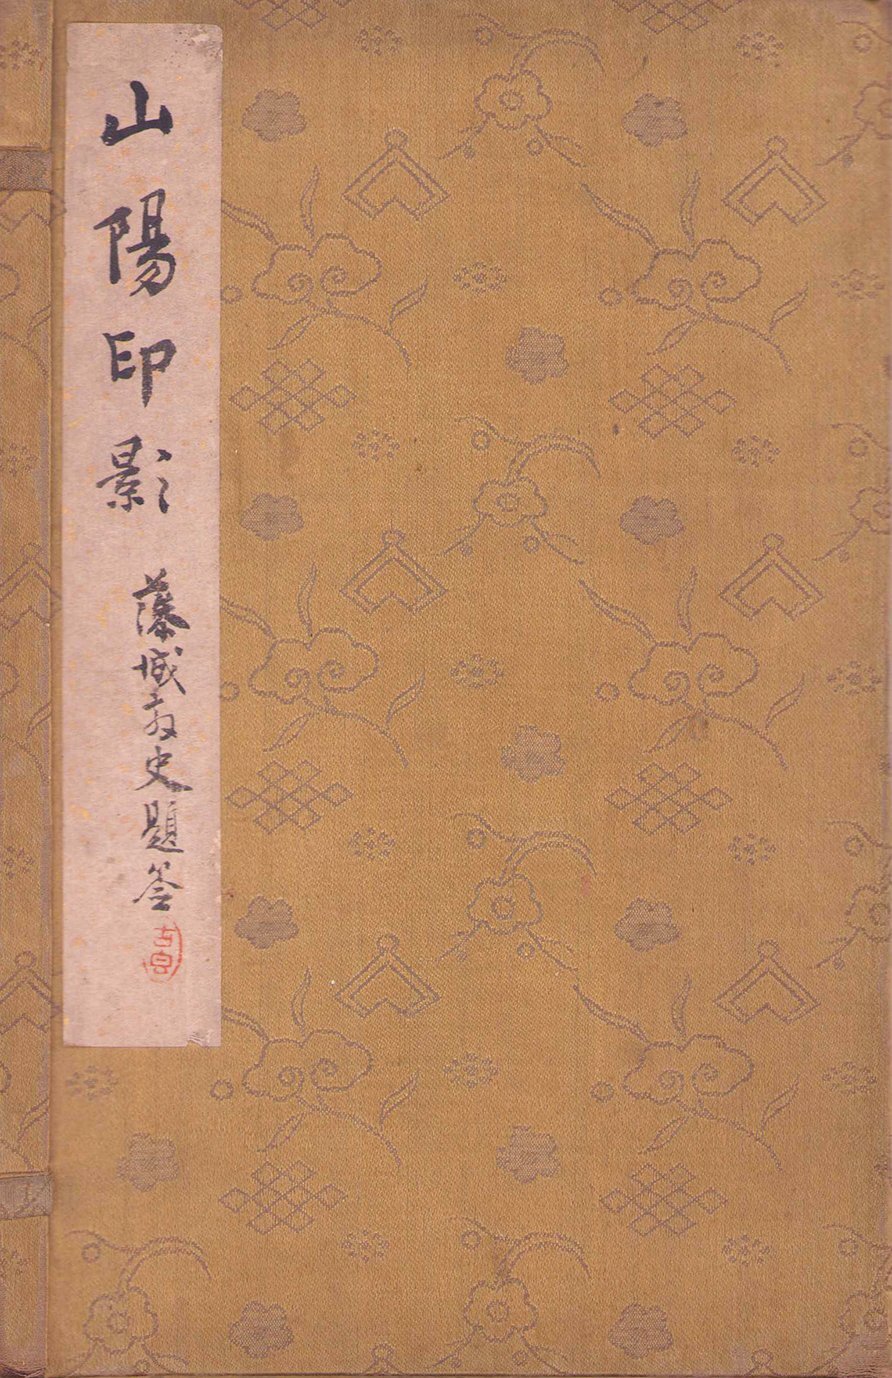 山陽印影
藤城散史題签